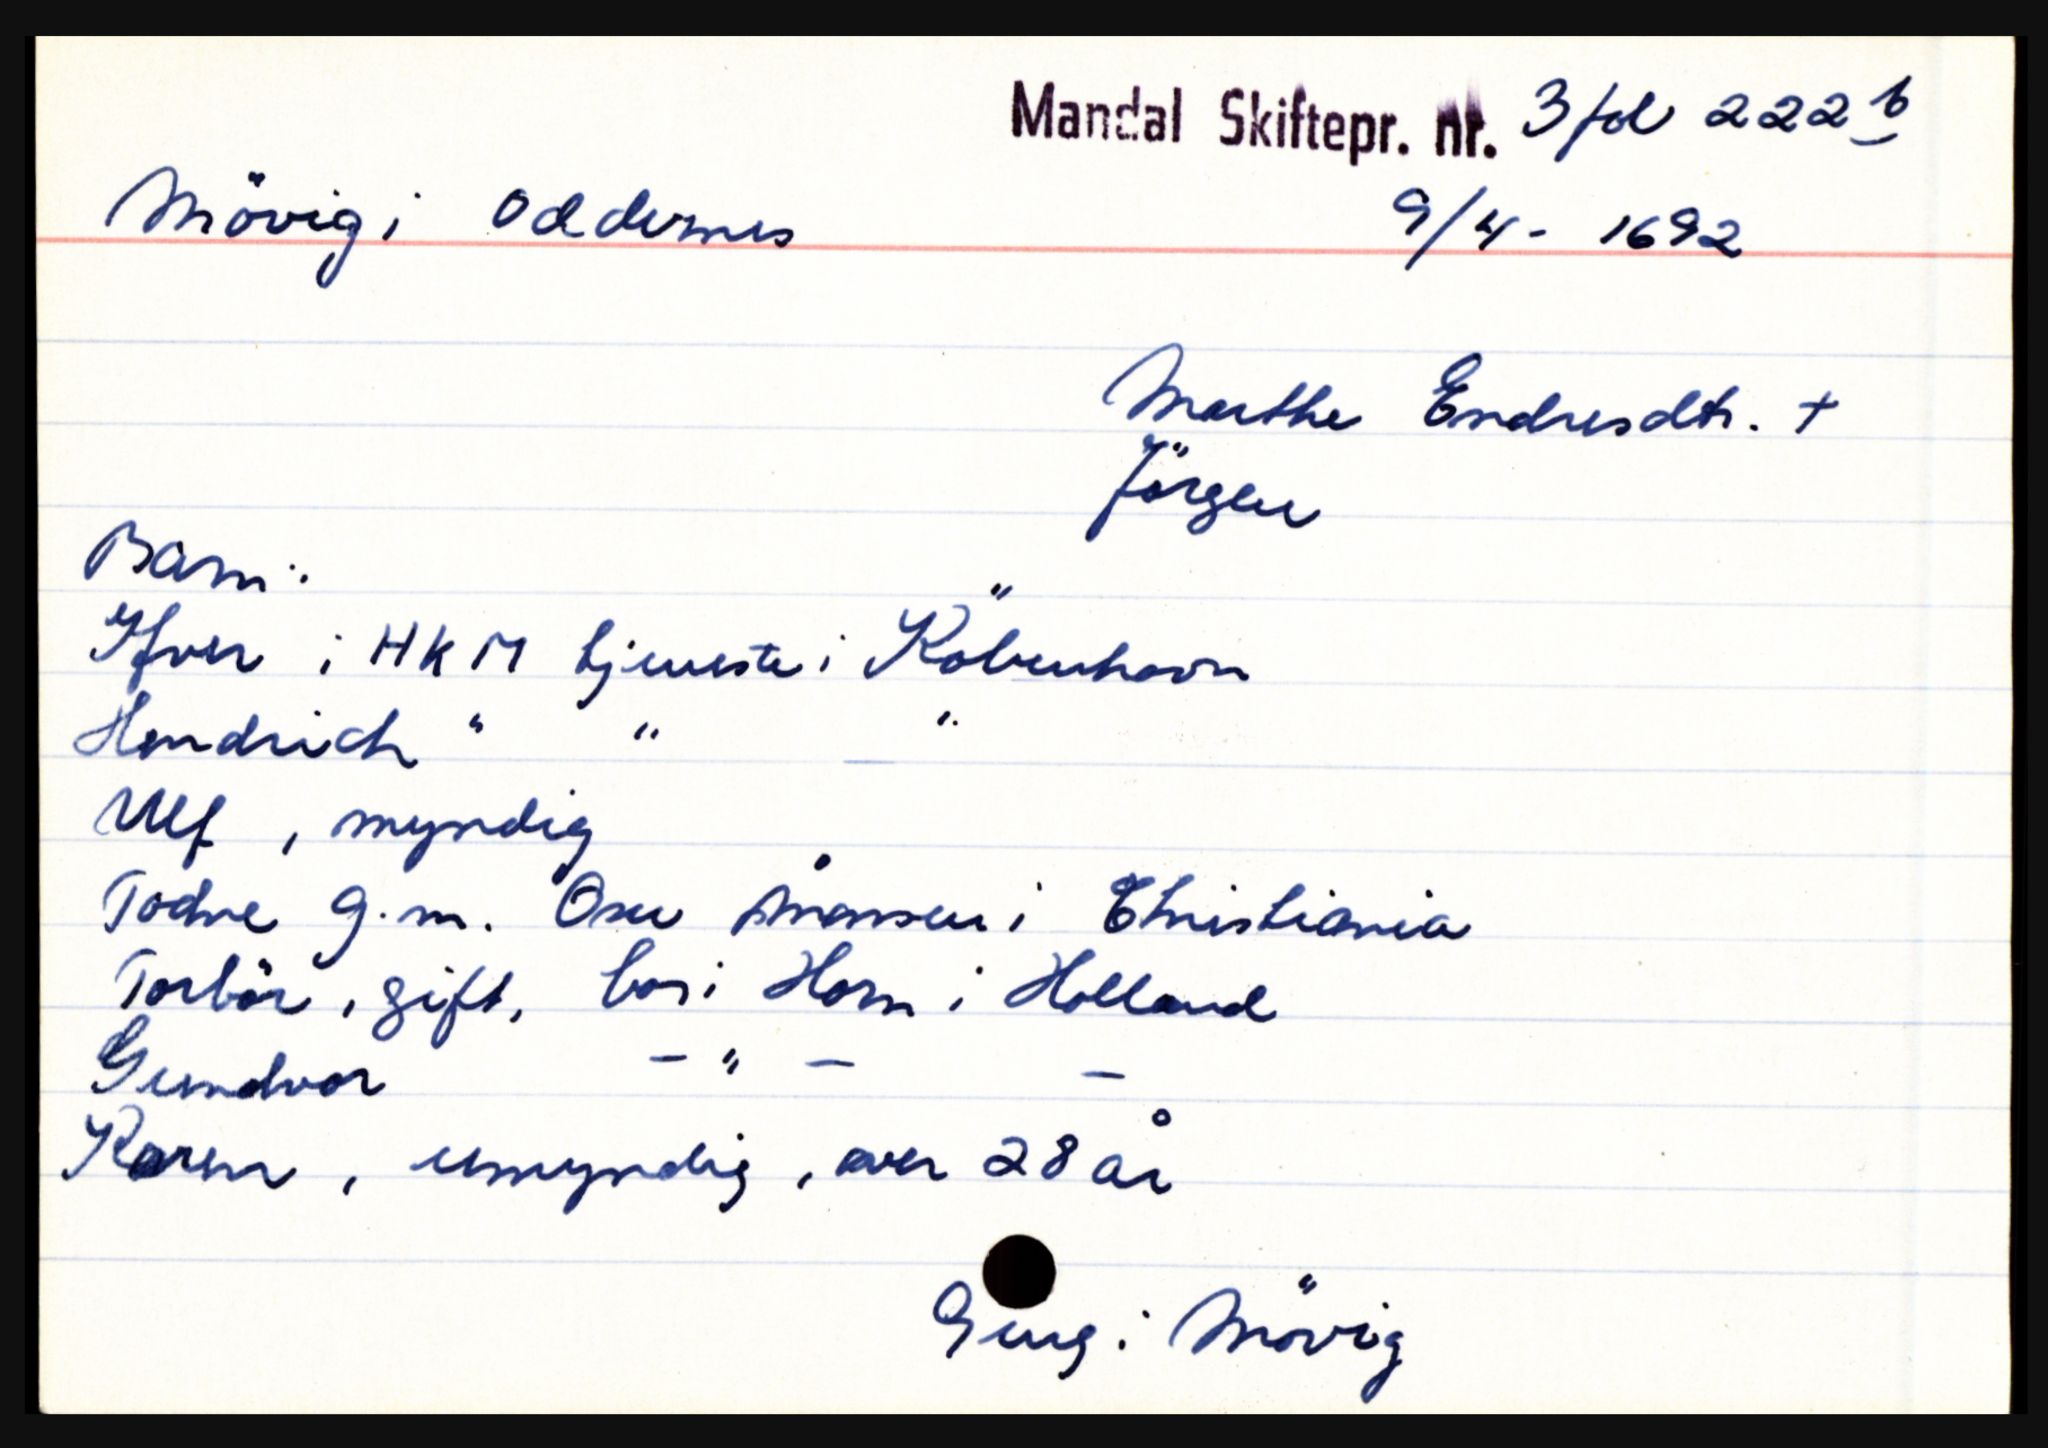 Mandal Skiftepr. nr. 3 fol 222 b
Mövig i Oddernes 9/4 - 1692
Marthe Endresdtr. +
Jörgen
Barn:
Ifver i HKM tjeneste i Köbenhavn
Hendrich " " "
Ulf, myndig
Todne g.m. Oau i Christiania
Torbör, gift, bor i Horn i Holland
Gundvor — " — —
Karen, umyndig, over 28 år
Eng i Mövig